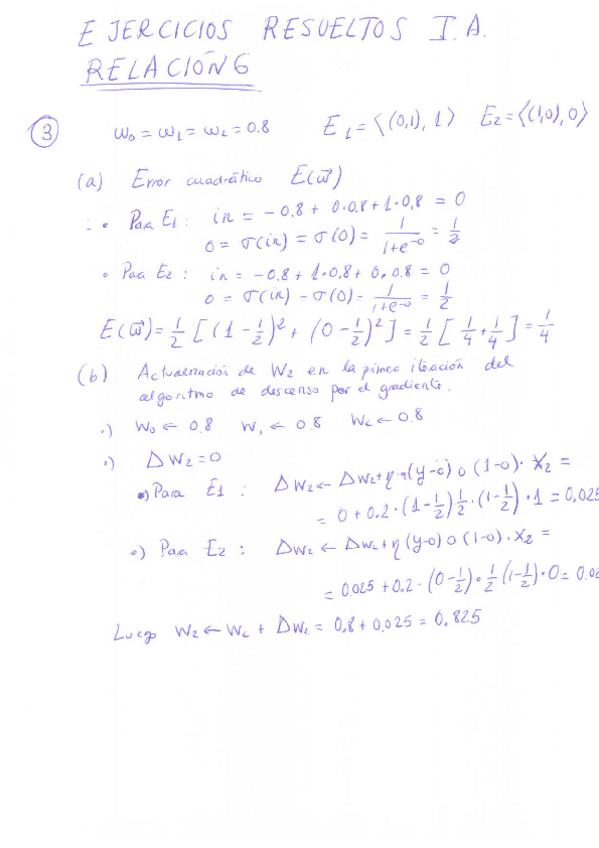 EJERCICIOS RESUELTOS I.A.
RELACIÓN 6
3 w₀ = w₁ = w₂ = 0.8 E₁ = ⟨(0,1), 1⟩ E₂ = ⟨(1,0), 0⟩
(a) Error cuadrático E(w⃗)
• Para E₁: in = -0,8 + 0·0.8 + 1·0,8 = 0
o = σ(in) = σ(0) = 1/(1+e^-0) = 1/2
• Para E₂: in = -0.8 + 1·0.8 + 0·0.8 = 0
o = σ(in) - σ(0) = 1/(1+e^-0) = 1/2
E(w⃗) = 1/2 [(1 - 1/2)² + (0 - 1/2)²] = 1/2 [1/4 + 1/4] = 1/4
(b) Actualización de W₂ en la primera iteración del
algoritmo de descenso por el gradiente.
•) W₀ ← 0.8 W₁ ← 0.8 W₂ ← 0.8
•) ΔW₂ = 0
•) Para E₁: ΔW₂ ← ΔW₂ + η·(y-o) o (1-o)· X₂ =
= 0 + 0.2·(1 - 1/2) 1/2·(1 - 1/2)·1 = 0,025
•) Para E₂: ΔW₂ ← ΔW₂ + η (y-o) o (1-o)· X₂ =
= 0.025 + 0.2·(0 - 1/2)· 1/2 (1 - 1/2)·0 = 0.02
Luego W₂ ← W₂ + ΔW₂ = 0.8 + 0.025 = 0.825